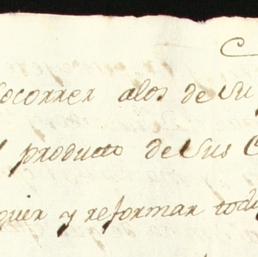 Socorrer alos de Su
producto de Sus
y reformar todo